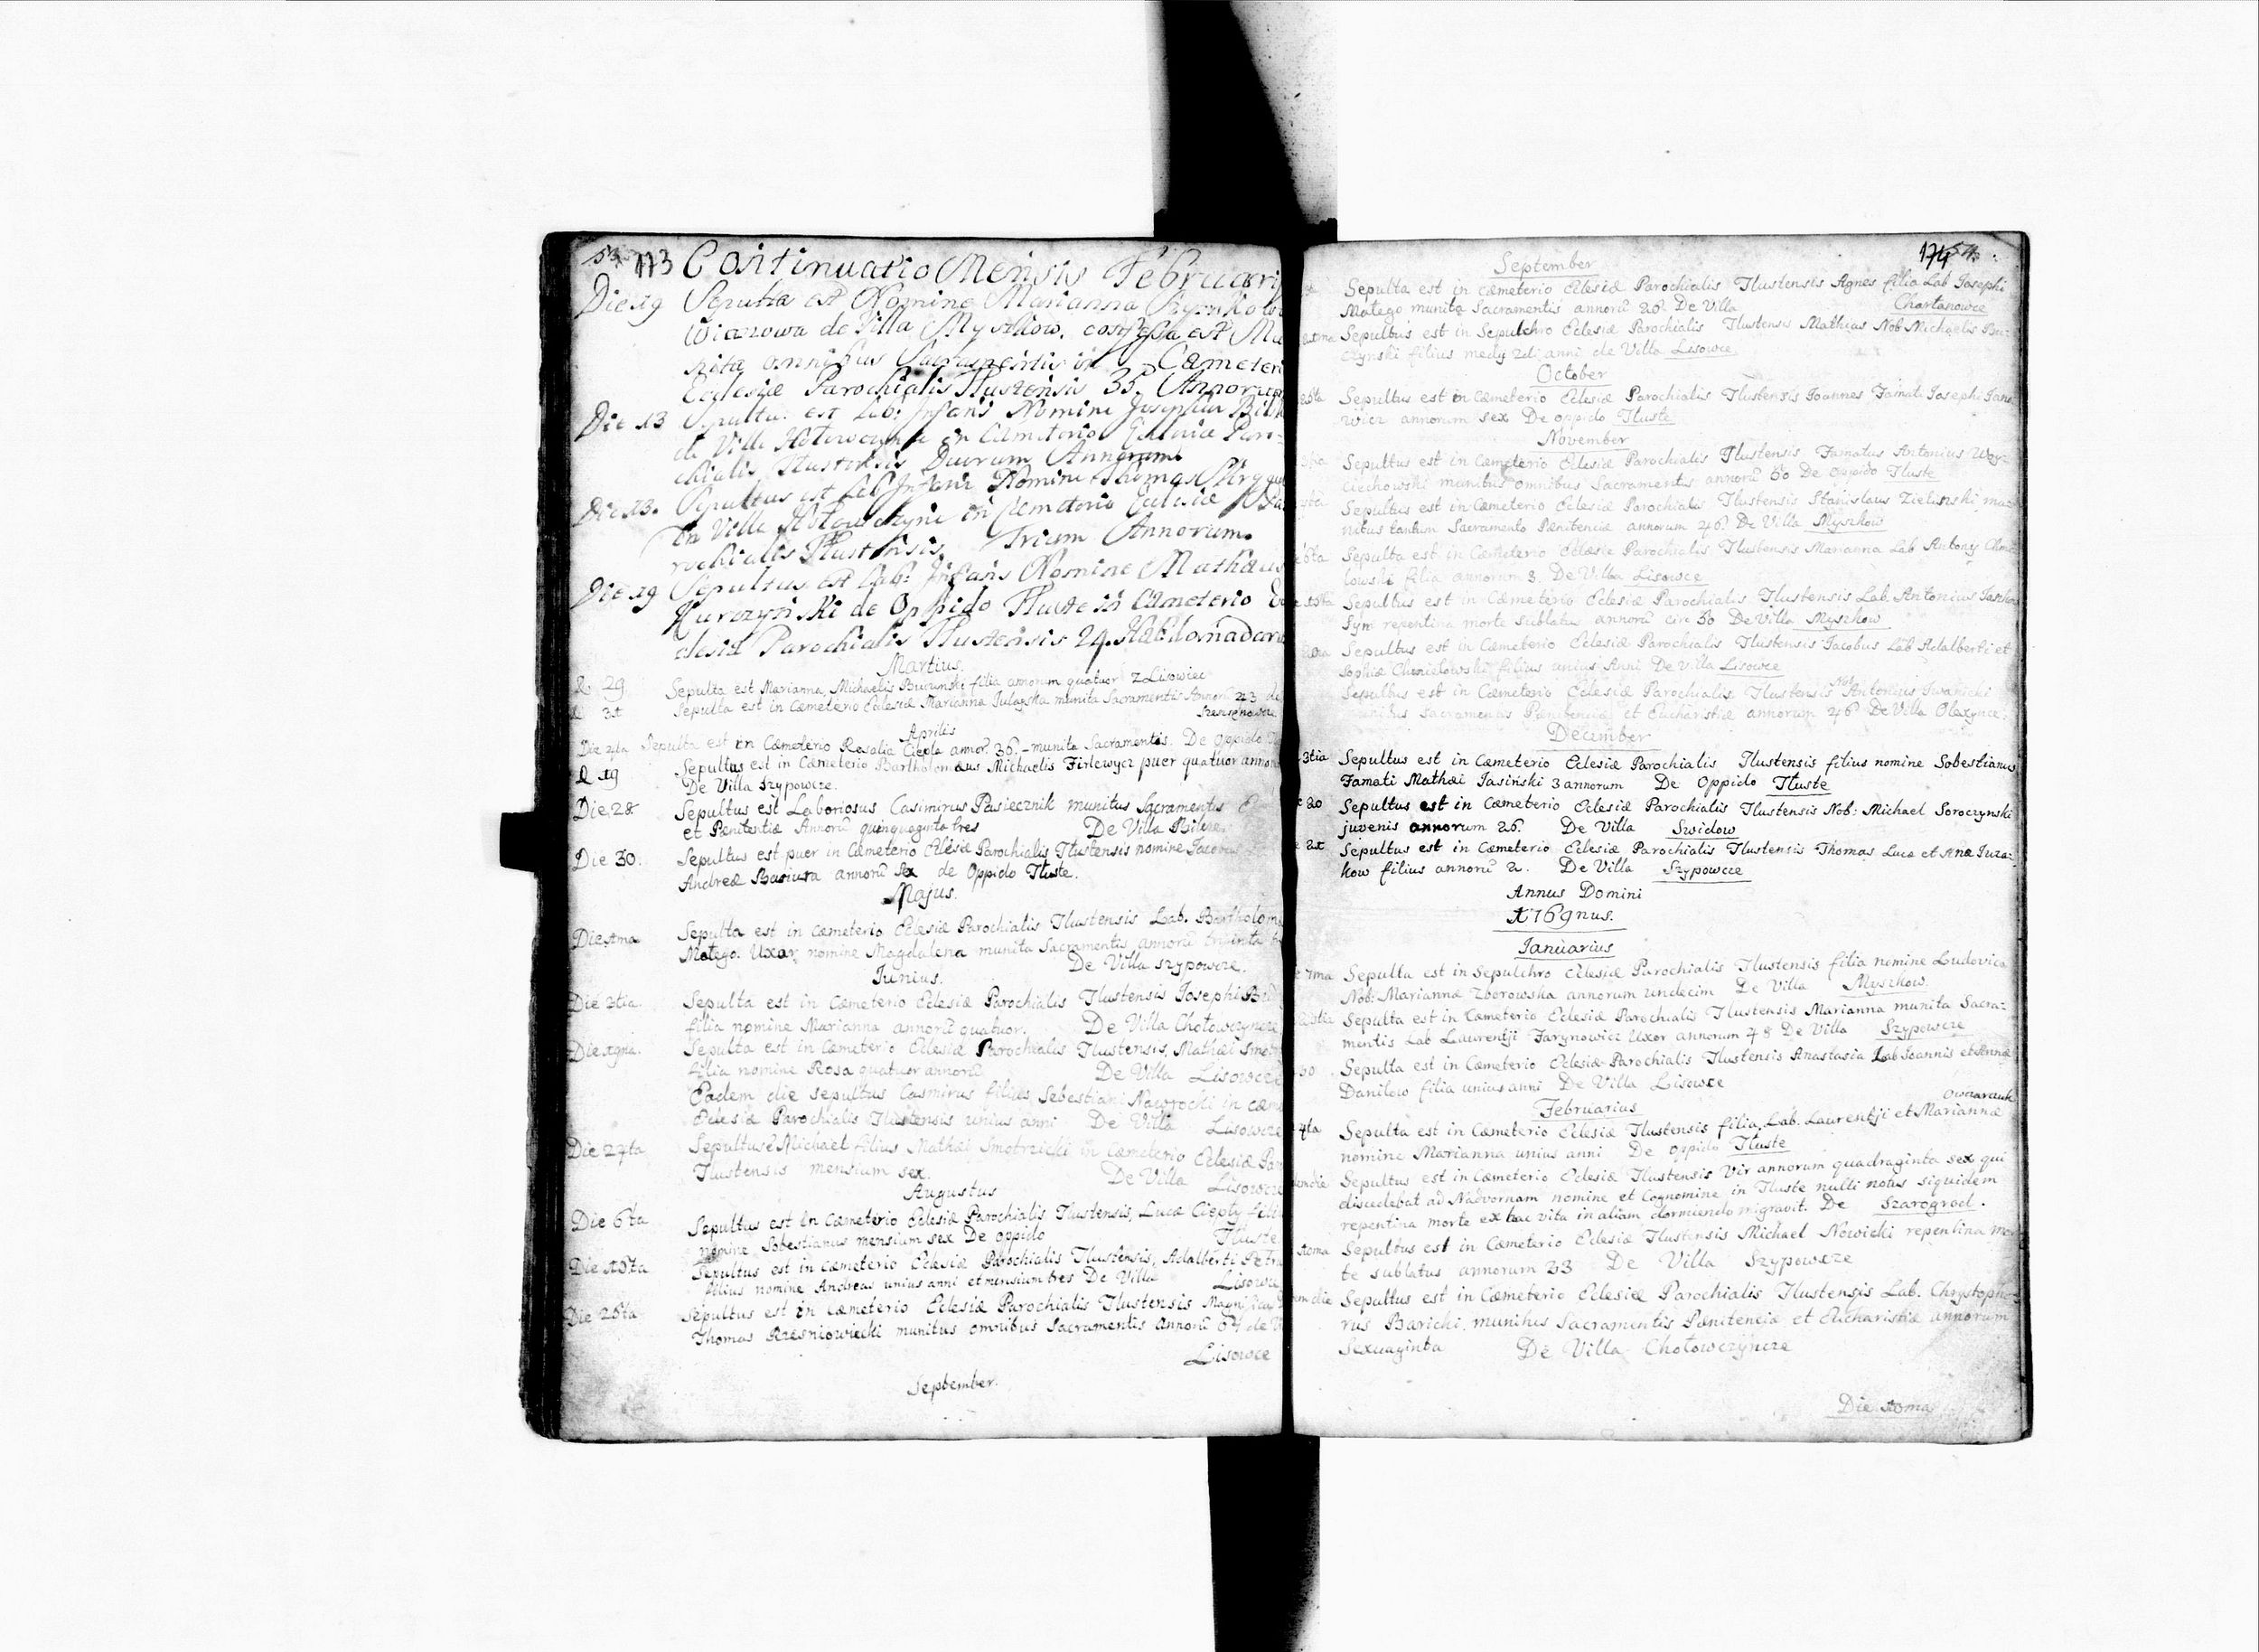 53. 173 Continuatio Mensis Februari
Die 19 Sepulta est Nomine Marianna
de Villa Myszkow, est Mu
nita omnibus Sacramentis in Cæmeteri
Ecclesiæ Parochialis Tlustensis 35. Annorum
Die 13 Sepultus est Lab: Infans Nomine Josephus
de Villa in Cæmeterio Eclesiæ Paro-
chialis Tlustensis Duorum Annorum
Die 13. Sepultus est Lab Infans Nomine Thomas
in Villa in Cæmeterio Eclesiæ Pa
rochialis Tlustensis Trium Annorum.
Die 19 Sepultus est Lab: Infans Nomine Mathæus
Kurczynski de Oppido Tluste in Cæmeterio Ec
clesiæ Parochialis Tlustensis 24. Hebdomadaru
Martius.
29. Sepulta est Marianna, Michaelis filia annorum quatuor z Lisowiec
Sepulta est in Cæmeterio Eclesiæ Marianna munita Sacramentis Annorū 43 de
Aprilis
Sepulta est in Cæmeterio Rosalia Ciepla annor. 36. munita Sacramentis. De Oppido
19 Sepultus est in Cæmeterio Bartholomæus Michaelis Firlewycz puer quatuor annoru
De Villa Szypowcze.
Die 28. Sepultus est Laboriosus Casimirus Pasiecznik munitus Sacramentis
et Pænitentiæ Annorū quinquaginta tres De Villa Bilcze.
Die 30. Sepultus est puer in Cæmeterio Eclesiæ Parochialis Tlustensis nomine Jacobus
Andreæ Basiura annorū sex de Oppido Tluste.
Majus.
Sepulta est in Cæmeterio Eclesiæ Parochialis Tlustensis Lab. Bartholom
Matego. Uxor nomine Magdalena munita Sacramentis annorū
De Villa szypowcze.
Iunius.
Die 3tia. Sepulta est in Cæmeterio Eclesiæ Parochialis Tlustensis Iosephi
filia nomine Marianna annorū quatuor. De Villa Chołowczyncze
Sepulta est in Cæmeterio Eclesiæ Parochialis Tlustensis, Mathæi
filia nomine Rosa quatuor annorū De Villa Lisowcze
Eadem die sepultus Casmirus filius Sebestiani Nawrocki in cæm
Eclesiæ Parochialis Tlustensis unius anni De Villa Lisowcze
Die 24ta Sepultus e Michael filius Mathæi Smotrzicki in Cæmeterio Eclesiæ Par
Tlustensis mensium sex. De Villa Lisowcze
Augustus
Die 6ta Sepultus est in Cæmeterio Eclesiæ Parochialis Tlustensis, Lucæ Ciepły fili
nomine Sobestianus mensium sex De Oppido Tluste
Sepultus est in Cæmeterio Eclesiæ Parochialis Tlustensis, Adalberti Petra
filius nomine Andreas unius anni et mensium tres De Villa Lisowce
Sepultus est in Cæmeterio Eclesiæ Parochialis Tlustensis
Thomas munitus omnibus Sacramentis Annorū 64 de V
Lisowce
September.
174
September
Sepulta est in Cæmeterio Eclesiæ Parochialis Tlustensis Agnes filia Lab Iosephi
Matego munita Sacramentis annorū 26 De Villa Chartanowce
Sepultus est in Sepulchro Eclesiæ Parochialis Tlustensis Mathias Nob Michaelis Bu:
czynski filius anni de Villa Lisowce
October
Sepultus est in Cæmeterio Eclesiæ Parochialis Tlustensis Ioannes Famati Iosephi Iano
wicz annorum sex De Oppido Tluste
November
Sepultus est in Cæmeterio Eclesiæ Parochialis Tlustensis Famatus Antonius Woy-
ciechowski munitus omnibus Sacramentis annorū 50 De Oppido Tluste
Sepultus est in Cæmeterio Eclesiæ Parochialis Tlustensis Stanislaus Zielinski mu
nitus tantum Sacramento Pænitenciæ annorum 46 De Villa Myszkow
6ta Sepulta est in Cæmeterio Eclesiæ Parochialis Tlustensis Marianna Lab Antonij Chmie
lowski filia annorum 3. De Villa Lisowce
Sepultus est in Cæmeterio Eclesiæ Parochialis Tlustensis Lab. Antonius
repentina morte sublatus annorū cir: 30 De Villa Myszkow
Sepultus est in Cæmeterio Eclesiæ Parochialis Tlustensis Iacobus Lab Adalberti et
Sophiæ Chmielowski filius unius Anni De Villa Lisowce
Sepultus est in Cæmeterio Eclesiæ Parochialis Tlustensis Nob Antonius Iwanicki
munitus Sacramentis Pænitenciæ et Eucharistiæ annorum 46 De Villa Olexynce.
December
3tia Sepultus est in Cæmeterio Eclesiæ Parochialis Tlustensis filius nomine Sobestianus
Famati Mathæi Iasiński 3 annorum De Oppido Tluste
20 Sepultus est in Cæmeterio Eclesiæ Parochialis Tlustensis Nob: Michael Soroczynski
juvenis annorum 26. De Villa Swidow
Sepultus est in Cæmeterio Eclesiæ Parochialis Tlustensis Thomas Lucæ et Anæ Iuza:
kow filius annorū 2. De Villa Szypowcze
Annus Domini
1769nus.
Ianuarius
7ma Sepulta est in Sepulchro Eclesiæ Parochialis Tlustensis filia nomine Ludovica
Nob: Mariannæ Zborowska annorum undecim De Villa Myszkow.
Sepulta est in Cæmeterio Eclesiæ Parochialis Tlustensis Marianna munita Sacra:
mentis Lab Laurentji Farynowicz Uxor annorum 48 De Villa Szypowcze
30 Sepulta est in Cæmeterio Eclesiæ Parochialis Tlustensis Anastasia Lab Ioannis et Annæ
Danilow filia unius anni De Villa Lisowce
Februarius Owczarczuk
4ta Sepulta est in Cæmeterio Eclesiæ Tlustensis filia Lab. Laurentji et Mariannæ
nomine Marianna unius anni De Oppido Tluste
Sepultus est in Cæmeterio Eclesiæ Tlustensis Vir annorum quadraginta sex qui
discedebat ad Nadvornam nomine et Cognomine in Tluste nulli notus siquidem
repentina morte ex hac vita in aliam dormiendo migravit. De Szarogrod.
Sepultus est in Cæmeterio Eclesiæ Tlustensis Michael Nowicki repentina mor
te sublatus annorum 33 De Villa Szypowcze
die Sepultus est in Cæmeterio Eclesiæ Parochialis Tlustensis Lab. Chrystopho
rus Baricki, munitus Sacramentis Pænitenciæ et Eucharistiæ annorum
Sexaginta De Villa Chołowczyncze
Die